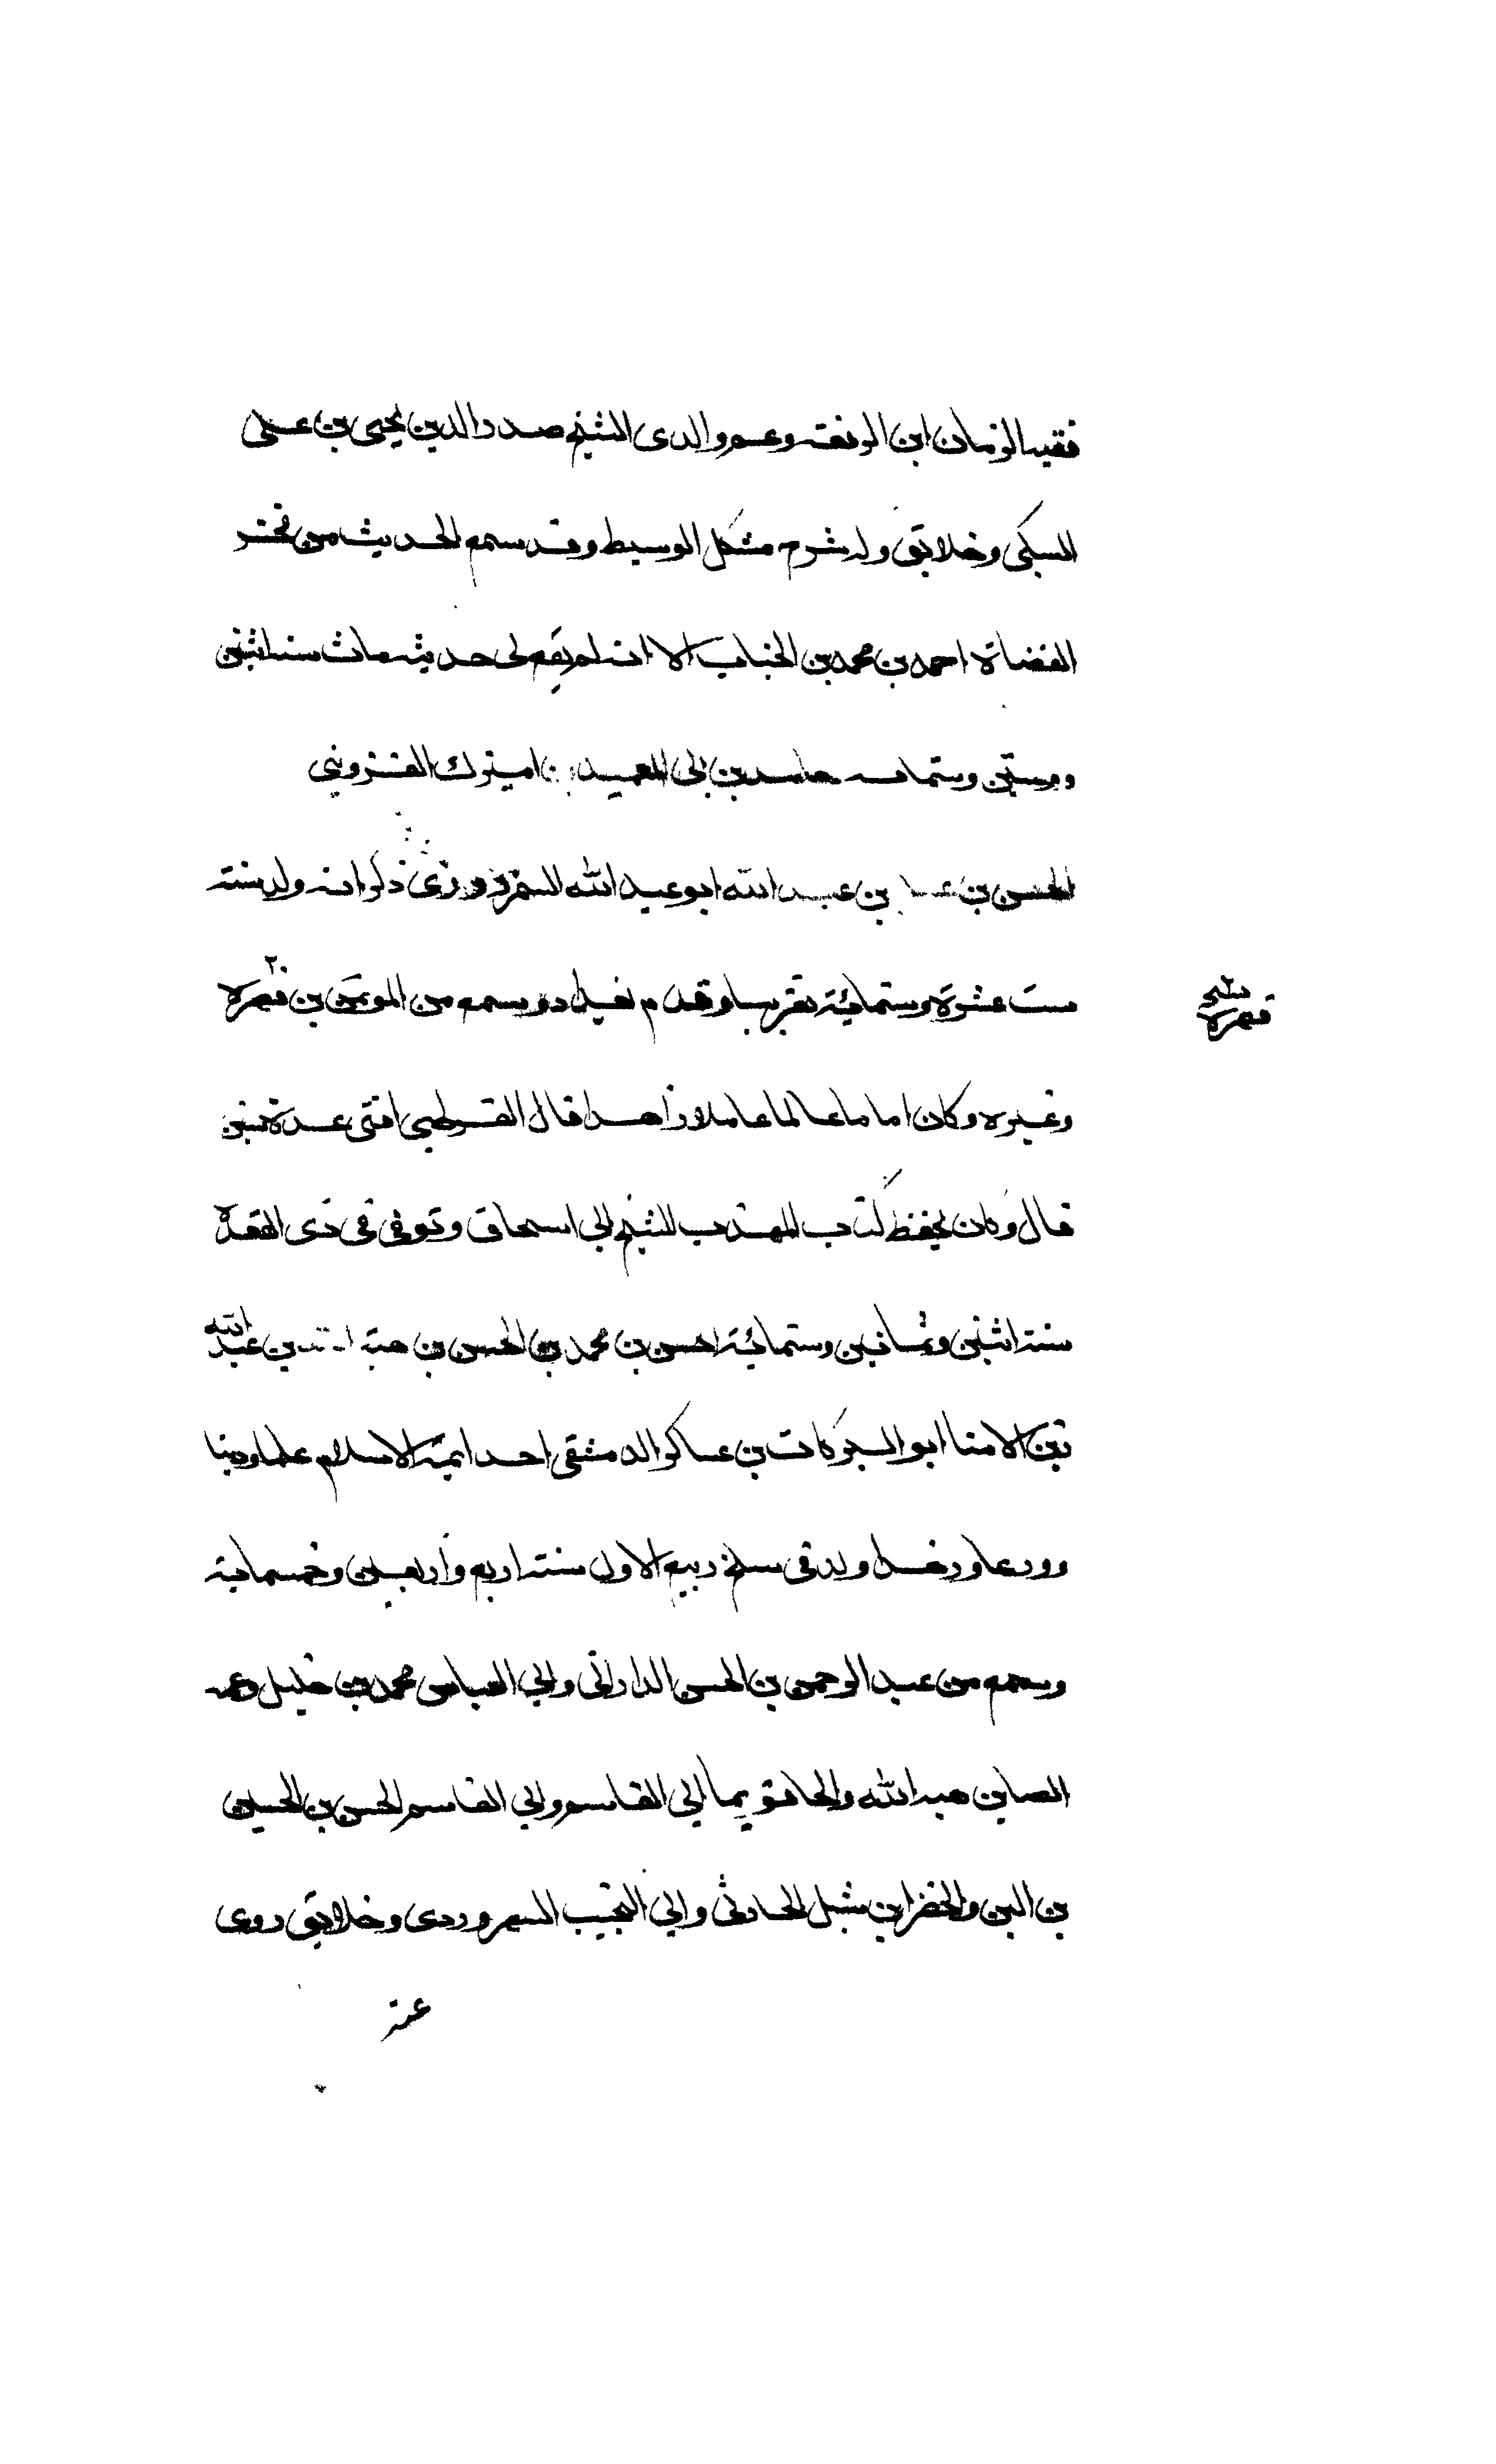 فقيه الزمان ابن الرفعة وعم والدى الشيخ صدر الدين يحيى بن على
السبكى وخلايق وله شرح مشكل الوسيط وقد سمع الحديث من فخر
القضاة احمد بن محمد بن الحباب الا انه لم يقع لى حديثه مات سنة اثنين
وستين وستمايه حامد بن ابى العميد بن اميرك القزوينى
الحسن بن بن عبد الله ابو عبد الله ذكر انه ولد سنة
ست عشرة وستمائة تقريبا وقدم بغداد وسمع من الموتمن بن قميرة
قميرة
وغيره وكان اماما عالما عاملا زاهدا قال افتى عدة سنين
قال وكان يحفظ كتاب المهذب للشيخ ابى اسحاق وتوفى فى ذى القعدة
سنة اثنين وثمانين وستمائة الحسن بن محمد بن الحسن بن هبة الله بن عبد الله
زين الامنا ابو البركات بن عساكر الدمشقى احد ايمة الاسلام علما ودينا
وورعا ولد فى سلخ ربيع الاول سنة اربع واربعين وخمسماية
وسمع من عبد الرحمن بن الحسن الدارانى وابى العباس محمد بن خليل وعمه
الصاين هبة الله وابى القاسم وابى القاسم الحسن بن الحسين
بن البن والخضر بن شبل الحارثى وابى النجيب السهروردى وخلايق روى
عنه